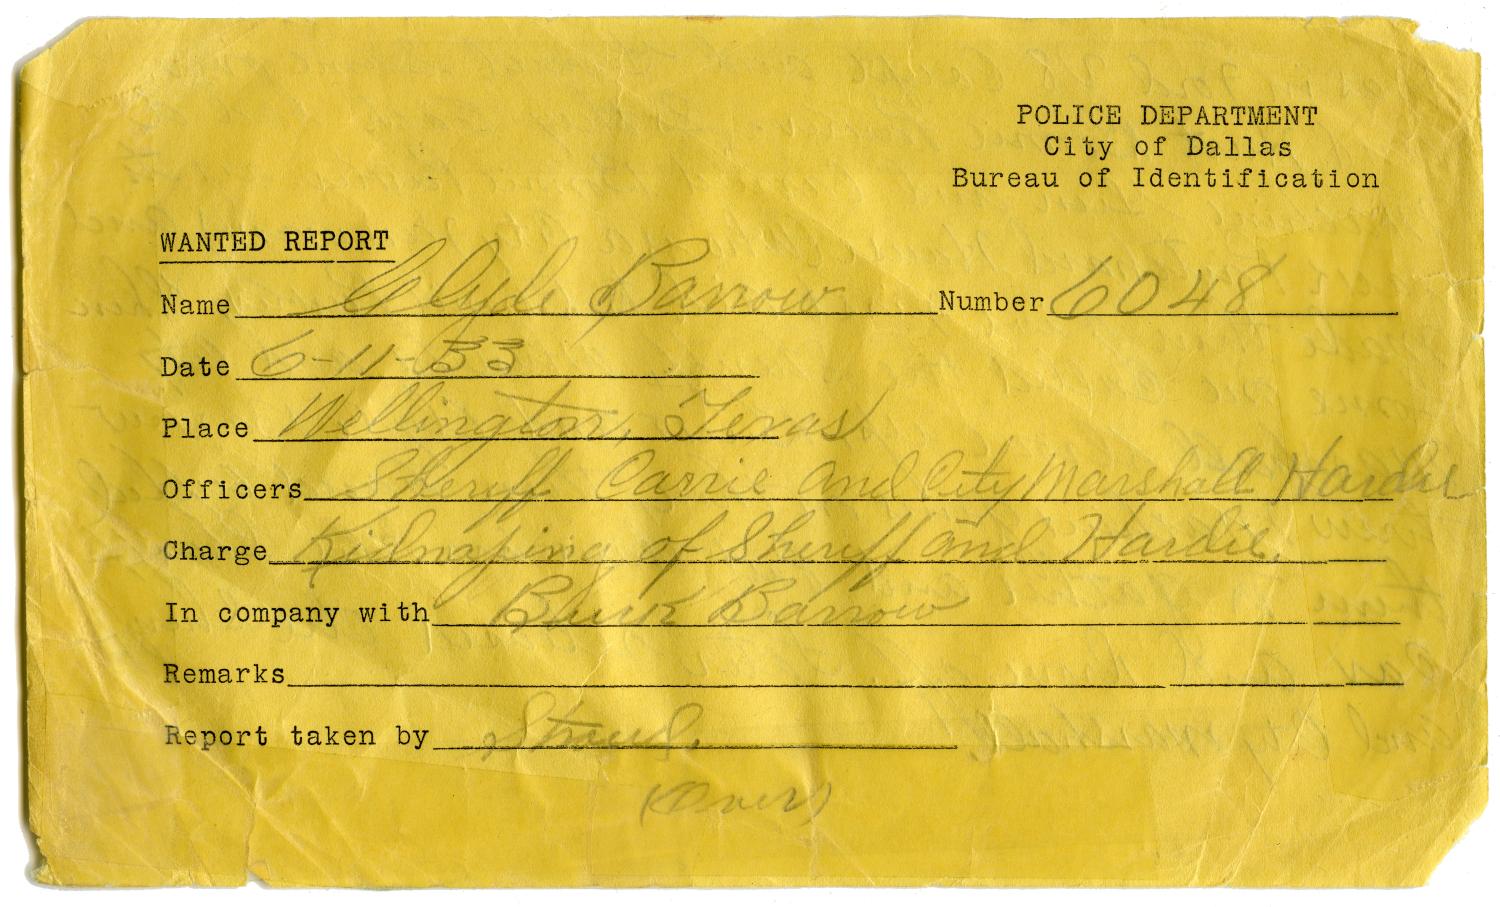 POLICE DEPARTMENT
City of Dallas
Bureau of Identification
WANTED REPORT
Name Clyde Barrow Number 6048
Date 6-11-33
Place Wellington, Texas
Officers Sheriff Carrie and City Marshall Hardie
Charge Kidnaping of Sheriff and Hardie.
In company with Buck Barrow
Remarks
Report taken by
(Over)